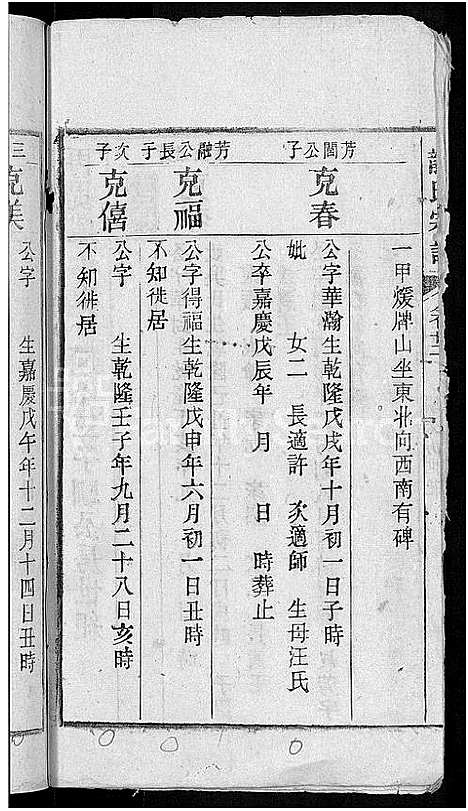 氏宗譜
一甲煖牌山坐東北向西南有碑
芳閶公子
克春
公字華瀚生乾隆戊戌年十月初一日子時
妣 女二 長適許 次適師 生母汪氏
公卒嘉慶戊辰年 月 日 時葬止
芳融公長子
克福
公字得福生乾隆戊申年六月初一日丑時
不知徙居
次子
克僖
公字 生乾隆壬子年九月二十八日亥時
不知徙居
三
克美
公字 生嘉慶戊午年十二月十四日丑時